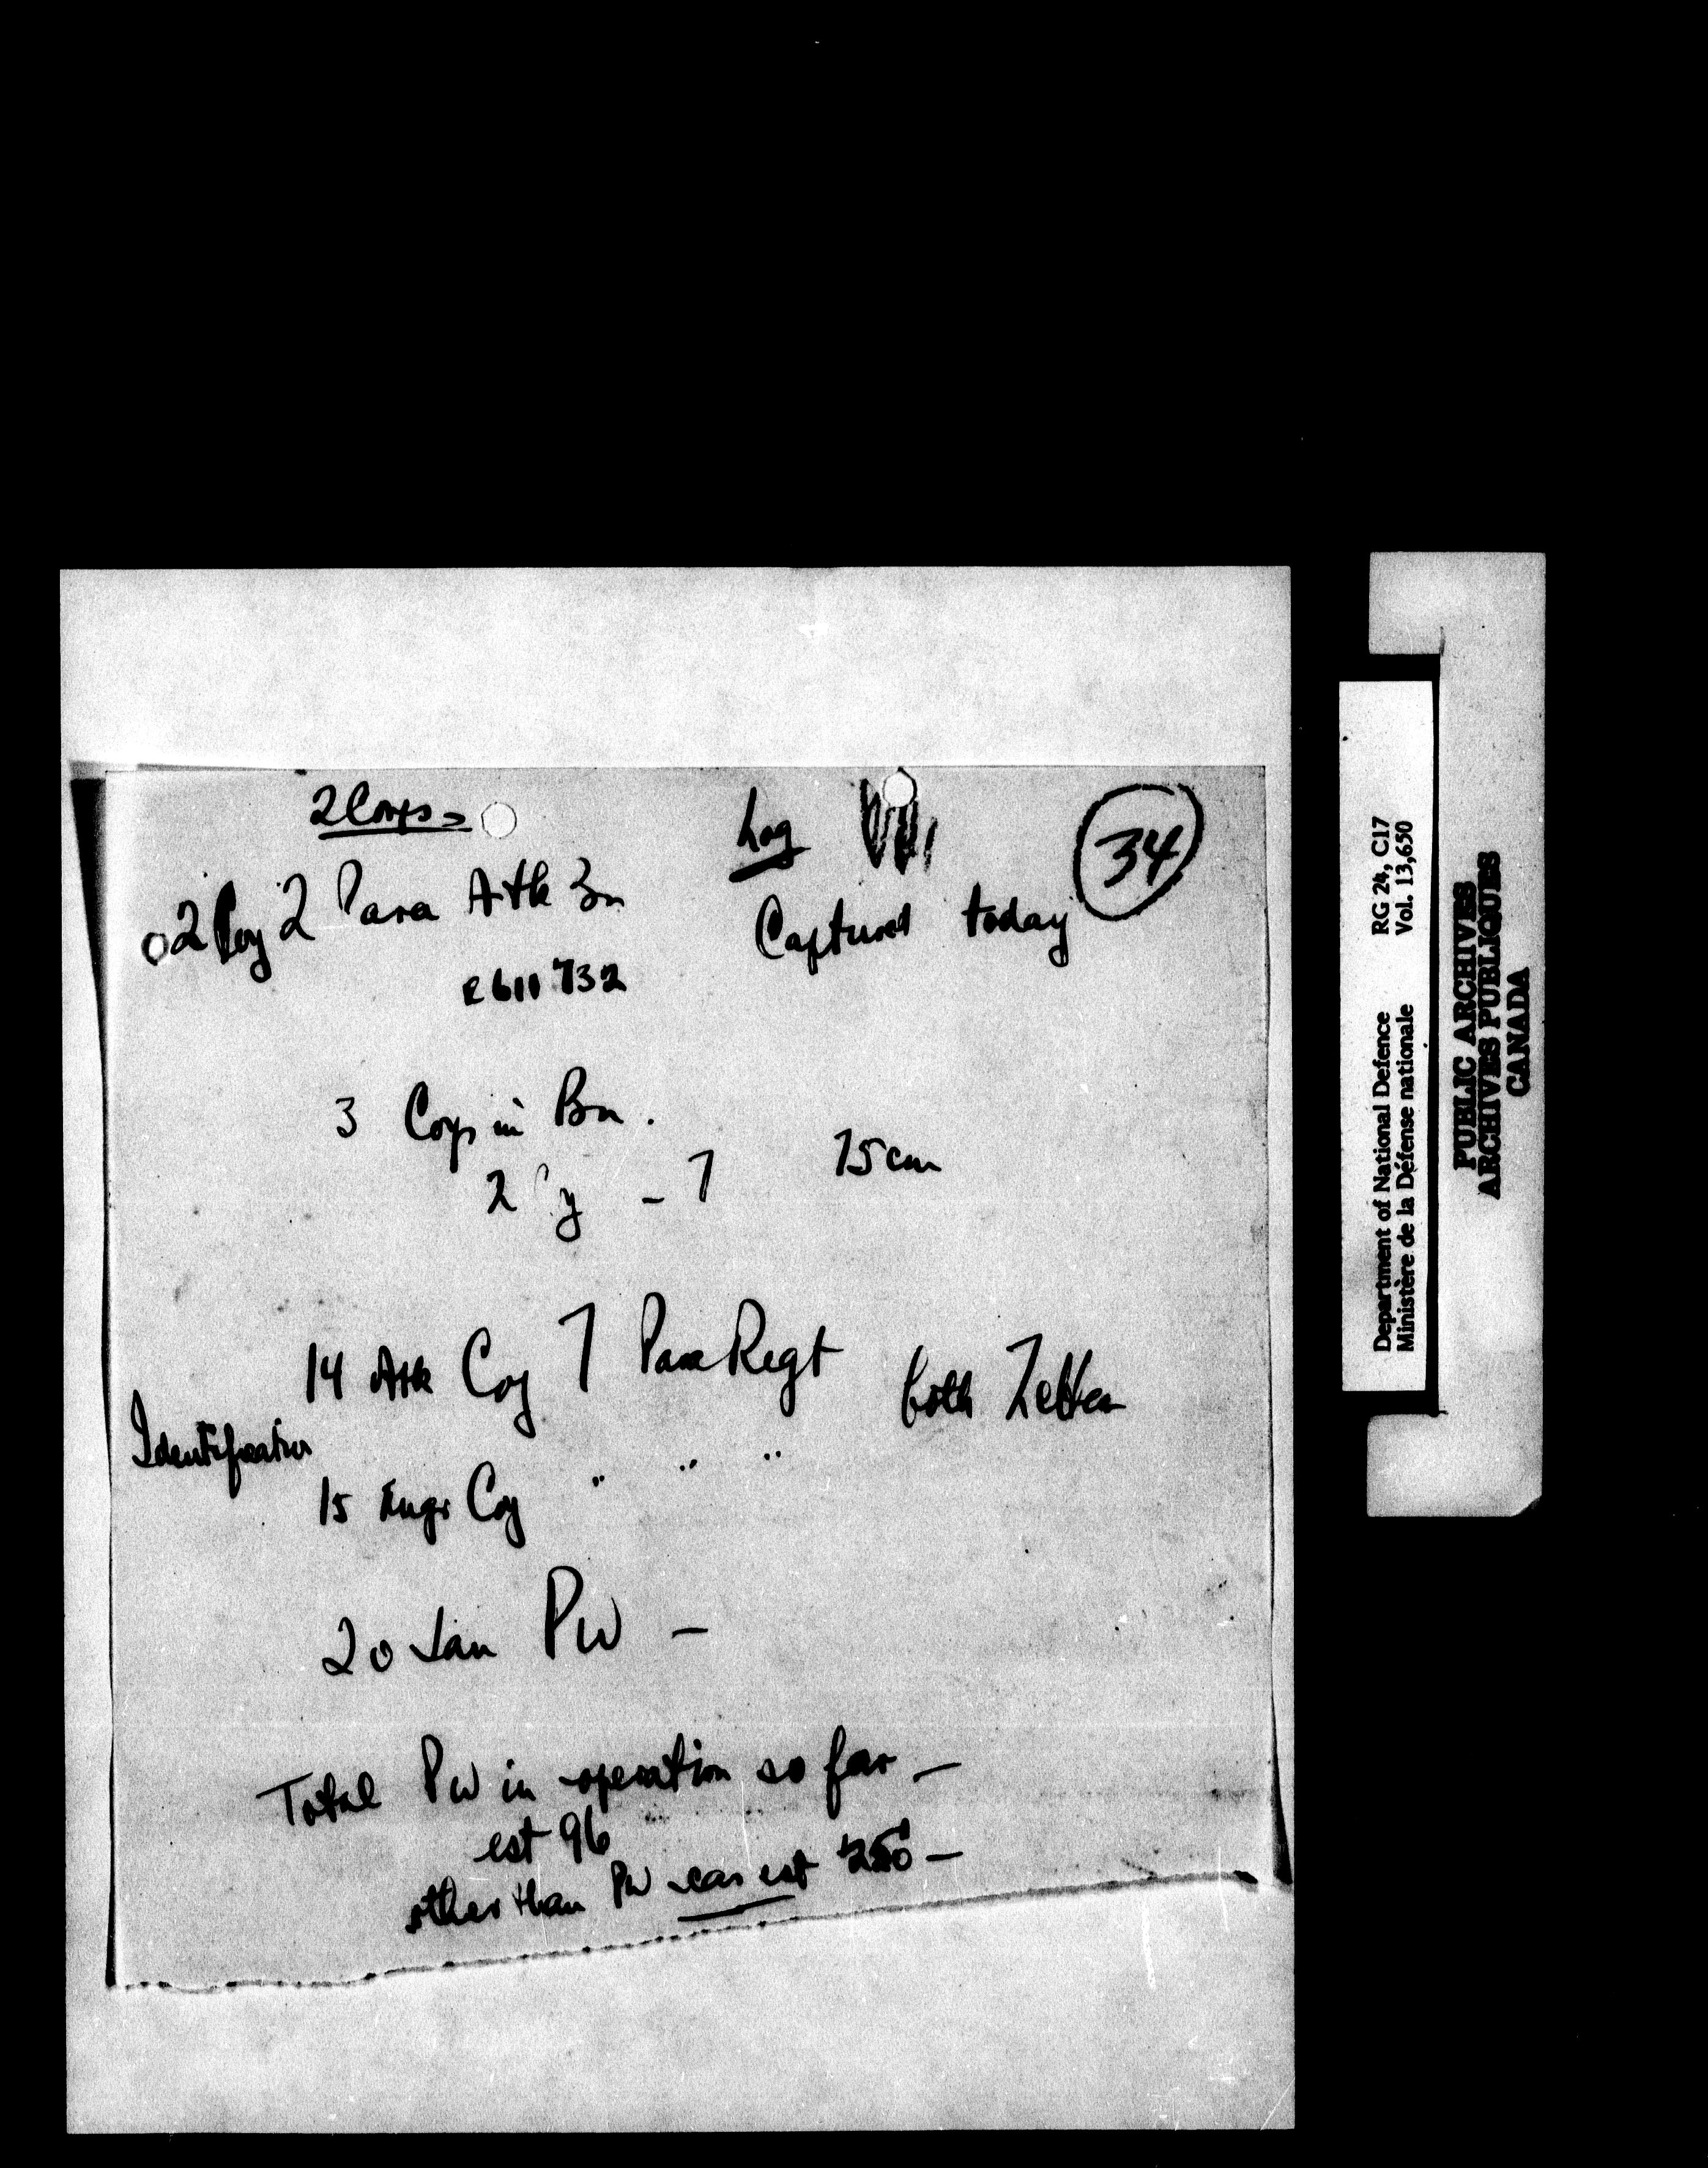 2 Corps
Log
34
2 Coy 2 Para Atk Bn
Captured today
E611732
3 Coys in Bn.
2 Cy - 7 75cm
14 Atk Coy 7 Para Regt both Zetten
Identification
15 Engr Coy " " "
20 Jan PW -
Total PW in operation so far -
est 96
other than PW cas est 250 -
Department of National Defence RG 24, C17
Ministère de la Défense nationale Vol. 13,650
PUBLIC ARCHIVES
ARCHIVES PUBLIQUES
CANADA